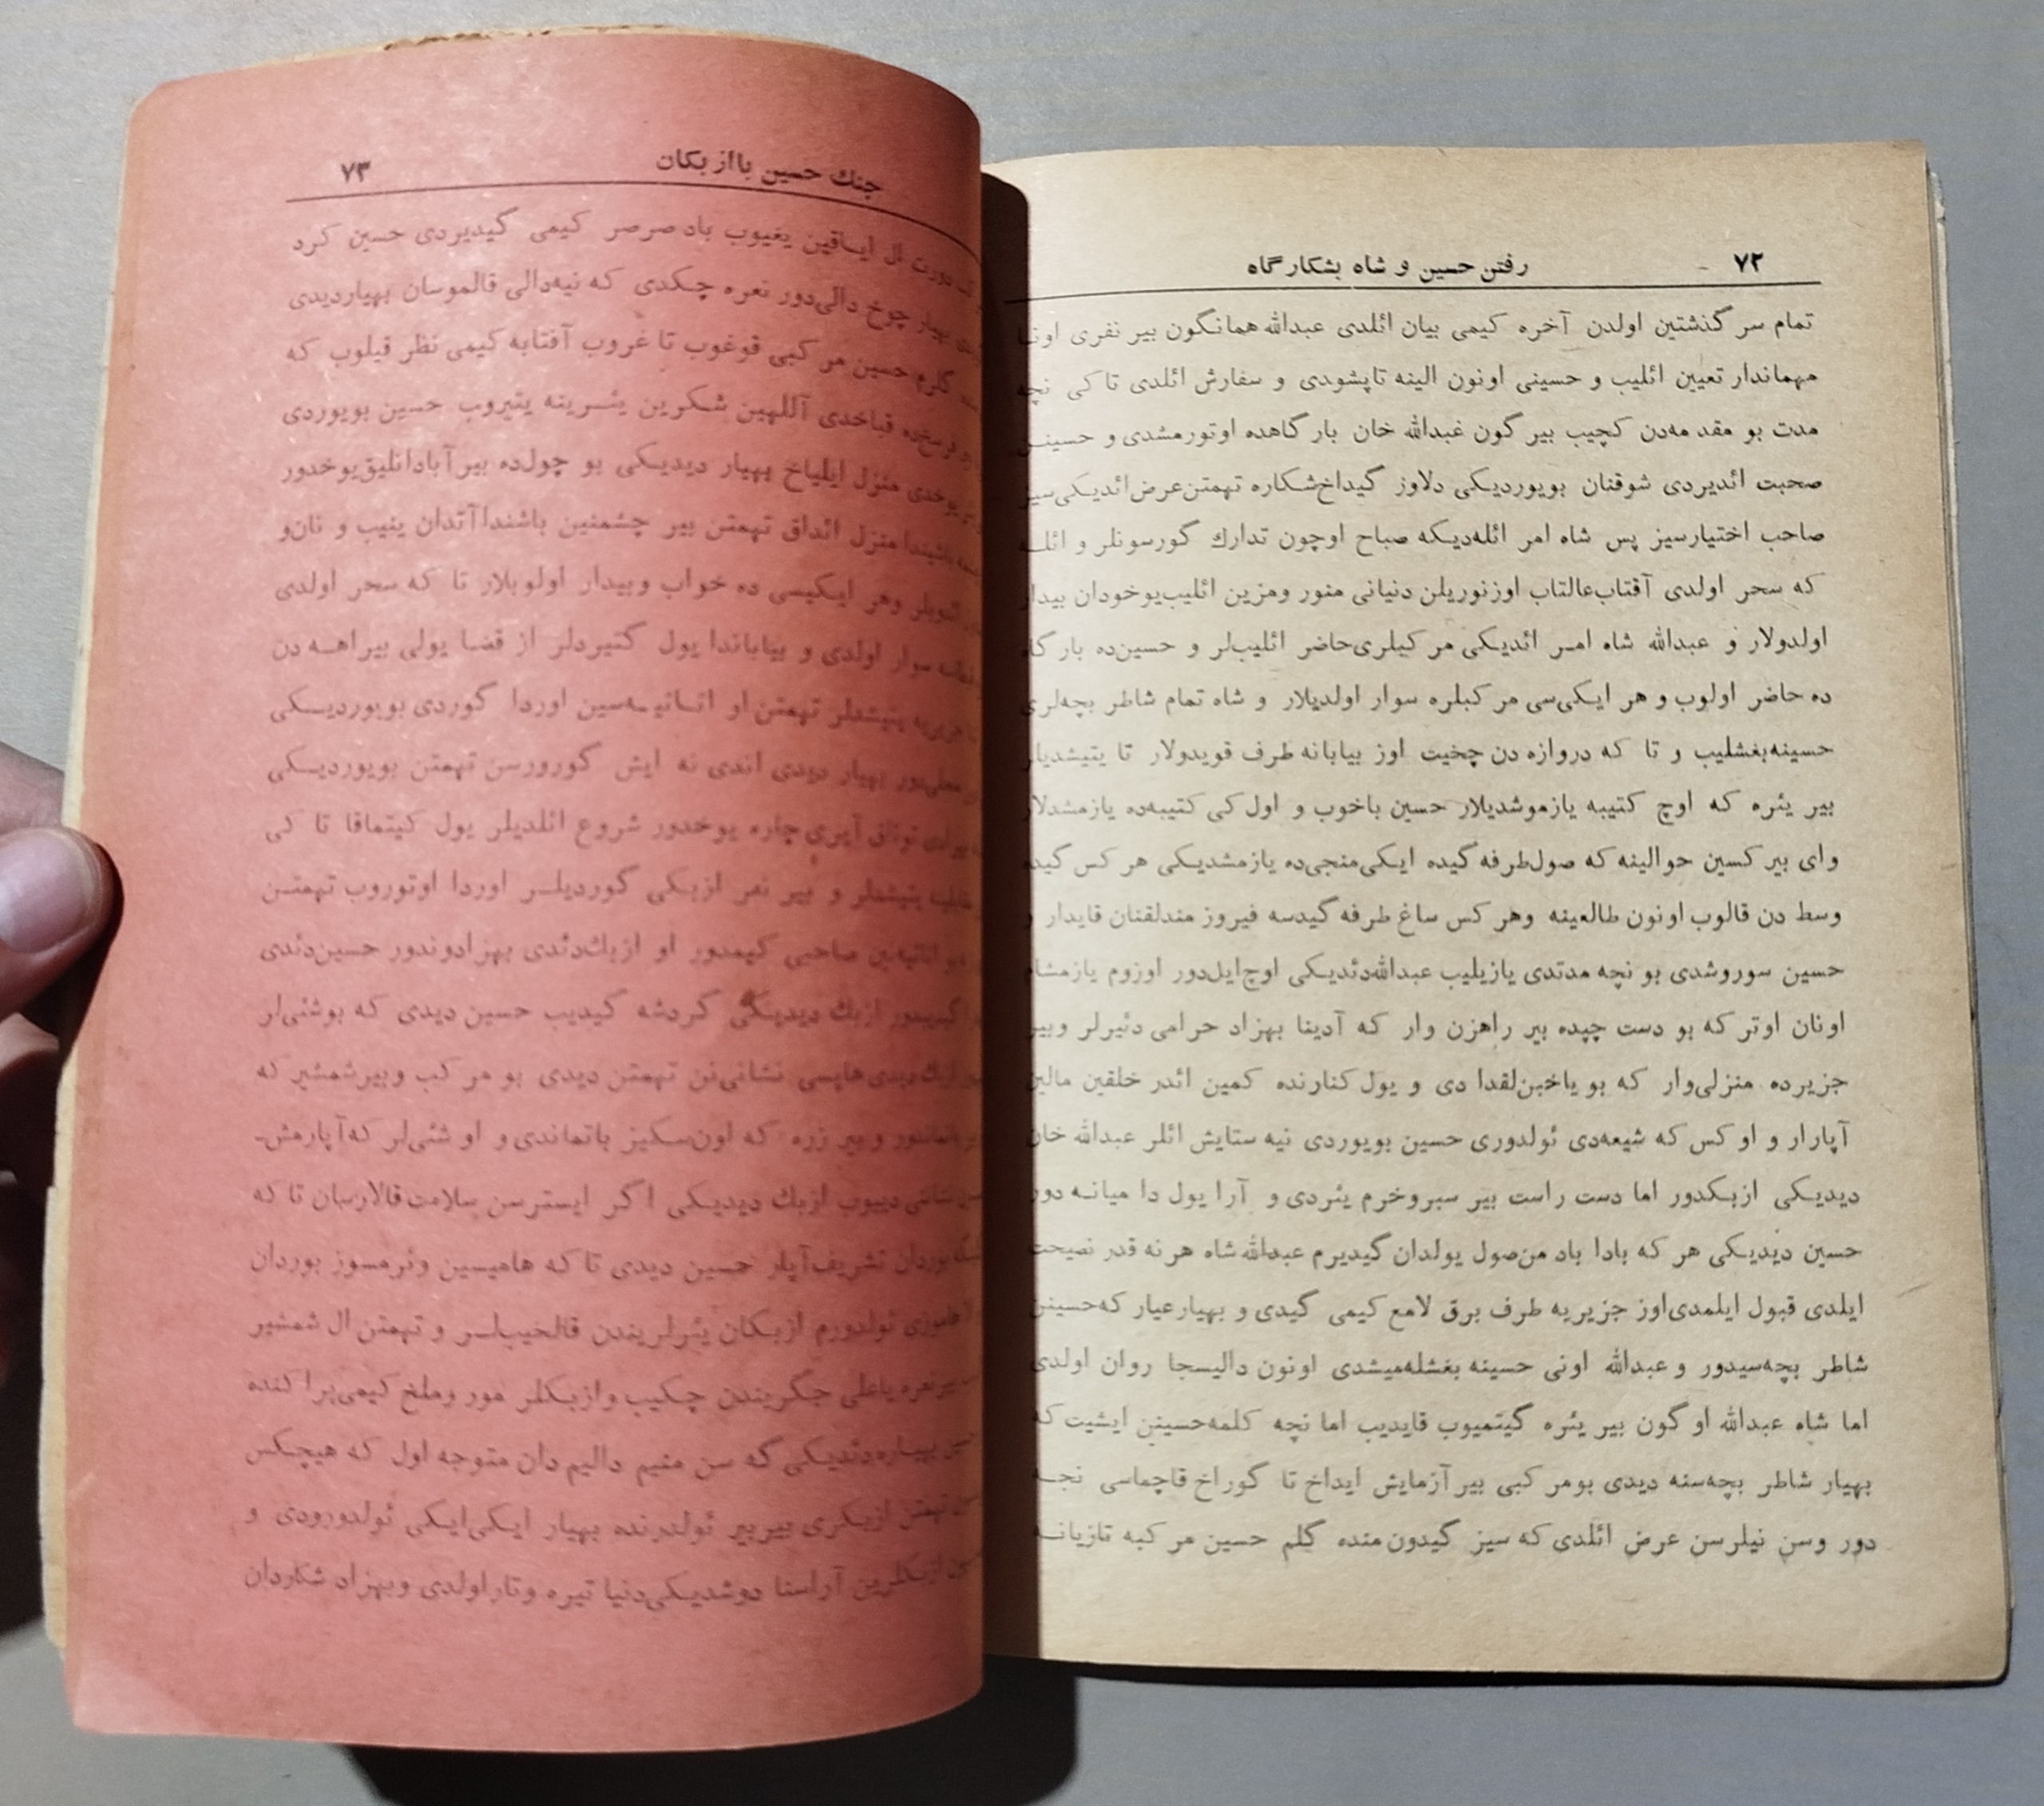 ۷۲ رفتن حسین و شاه بشکارگاه
تمام سر گذشتین اولدن آخره کیمی بیان ائلدی عبدالله همانگون بیر نفری
مهماندار تعیین ائلیب و حسینی اونون الینه تاپشودی و سفارش ائلدی تا کی نچه
مدت بو مقدمه‌دن کچیب بیر گون غبدالله خان بار گاهده اوتورمشدی و
صحبت ائدیردی شوقنان بویوردیکی دلاوز گیداخ شکاره تهمتن عرض ائدیکی
صاحب اختیارسیز پس شاه امر ائله‌دیکه صباح اوچون تدارك گورسونلر و
که سحر اولدی آفتاب عالتاب اوزنوریلن دنیانی منور ومزین ائلیب یوخودان
اولدولار و عبدالله شاه امر ائدیکی مر کیلری حاضر ائلیب‌لر و حسین‌ده بار
ده حاضر اولوب و هر ایکی‌سی مر کبلره سوار اولدیلار و شاه تمام شاطر بچه‌لری
حسینه بغشلیب و تا که دروازه دن چخیت اوز بیابانه طرف قویدولار تا
بیر یئره که اوچ کتیبه یازموشدیلار حسین باخوب و اول کی کتیبه‌ده یازمشدلار
وای بیر کسین حوالینه که صول‌طرفه گیده ایکی‌منجی‌ده یازمشدیکی هر کس گیده
وسط دن قالوب اونون طالعینه وهر کس ساغ طرفه گیدسه فیروز مندلقنان قایدار
حسین سوروشدی بو نچه مدتدی یازیلیب عبدالله‌دئدیکی اوچ‌ایل‌دور اوزوم
اونان اوتر که بو دست چپده بیر راهزن وار که آدینا بهزاد حرامی دئیرلر وبیر
جزیرده منزلی‌وار که بو یاخین‌لقدا دی و یول کنارنده کمین ائدر خلقین مالین
آپارار و او کس که شیعه‌دی ئولدوری حسین بویوردی نیه ستایش ائلر عبدالله خان
دیدیکی ازبکدور اما دست راست بیر سبروخرم یئردی و آرا یول دا میانه دور
حسین دیدیکی هر که بادا باد من‌صول یولدان گیدیرم عبدالله شاه هر نه قدر نصیحت
ایلدی قبول ایلمدی‌اوز جزیریه طرف برق لامع کیمی گیدی و بهیارعیار که‌حسینن
شاطر بچه‌سیدور و عبدالله اونی حسینه بغشله‌میشدی اونون دالیسجا روان اولدی
اما شاه عبدالله او گون بیر یئره گیتمیوب قایدیب اما نچه کلمه‌حسینن ایشیت که
بهیار شاطر بچه‌سنه دیدی بومر کبی بیر آزمایش ایداخ تا گوراخ قاچماسی نجه
دور وسن نیلرسن عرض ائلدی که سیز گیدون منده گلم حسین مر کبه تازیانه
جنك حسین باازبکان ۷۳
دورت ال ایاقین یغیوب باد صرصر کیمی گیدیردی حسین کرد
بهیار چوخ دالی‌دور نعره چکدی که نیه‌دالی قالموسان بهیاردیدی
گلرم حسین مر کبی قوغوب تا غروب آفتابه کیمی نظر قیلوب که
قباخدی آللهین شکرین یئرینه یئیروب حسین بویوردی
منزل ایلیاخ بهیار دیدیکی بو چول‌ده بیر آبادانلیق‌یوخدور
منزل ائداق تهمتن بیر چشمنین باشندا آتدان ینیب و نان‌و
وهر ایکیسی ده خواب وبیدار اولوبلار تا که سحر اولدی
سوار اولدی و بیاباندا یول گتیردلر از قضا یولی بیراهه دن
یتیشدلر تهمتن او اوردا گوردی بویوردیکی
بهیار دیدی اندی نه ایش گورورسن تهمتن بویوردیکی
توتاق آیری چاره یوخدور شروع ائلدیلر یول کیتماقا تا کی
یتیشدلر و بیر نفر ازبکی گوردیلر اوردا اوتوروب تهمتن
صاحبی کیمدور او ازبك‌دئدی بهزادوندور حسین‌دئدی
ازبك دیدیکی گردشه گیدیب حسین دیدی که بوشئی‌لر
هایسی نشانی‌نن تهمتن دیدی بو مر کب وبیرشمشیر که
وبیر زره که اون‌سکیز باتماندی و او شئی‌لر که‌آپارمش-
دییوب ازبك دیدیکی اگر ایسترسن سلامت‌قالارسان تا که
بوردان تشریف‌آپار حسین دیدی تا که هامیسین وئرمسوز بوردان
ئولدورم ازبکان یئرلریندن قالخیب‌لر و تهمتن ال شمشیر
نعره یاعلی جگریندن چکیب وازبکلر مور وملخ کیمی‌پرا کنده
بهیاره‌دئدیکی که سن منیم دالیم دان متوجه اول که هیچکس
تهمتن ازبکری بیربیر ئولدرنده بهیار ایکی‌ایکی ئولدورودی و
ازبکلرین آراسنا دوشدیکی‌دنیا تیره وتاراولدی وبهزاد شکاردان